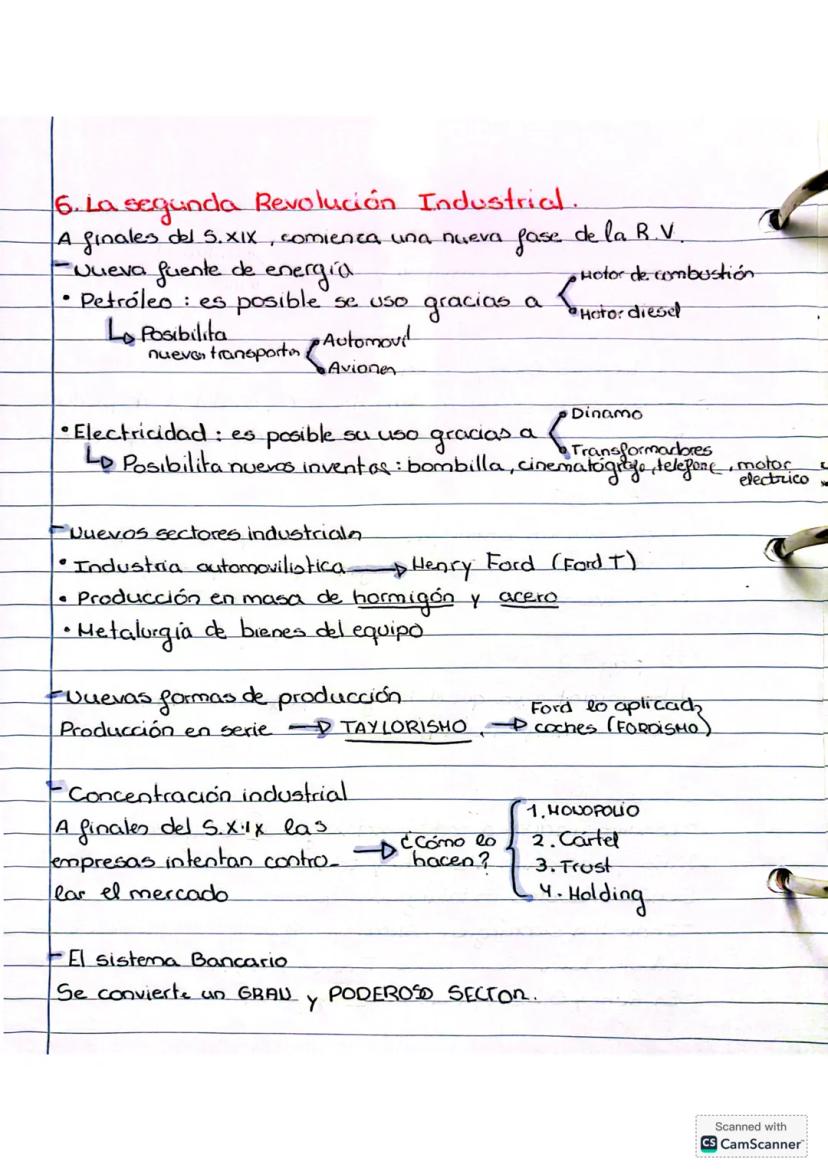 6. La segunda Revolución Industrial.
A finales del S.XIX, comienza una nueva fase de la R.V.
- Nueva fuente de energía
• Petróleo : es posible se uso gracias a
Motor de combustión
Motor diesel
Posibilita
nuevos transportes
Automovil
Aviones
• Electricidad : es posible su uso gracias a
Dinamo
Transformadores
Posibilita nuevos inventos : bombilla, cinematógrafo, telefono, motor
electrico
- Nuevos sectores industriales
• Industria automovilistica → Henry Ford (Ford T)
• Producción en masa de hormigón y acero
• Metalurgía de bienes del equipo
- Nuevas formas de producción
Producción en serie → TAYLORISMO. → Ford lo aplica a
coches (FORDISMO)
- Concentración industrial
A finales del S.XIX las
empresas intentan contro-
lar el mercado
→ ¿Cómo lo
hacen?
1. MONOPOLIO
2. Cártel
3. Trust
4. Holding
- El sistema Bancario
Se convierte un GRAN y PODEROSO SECTOR.
Scanned with
CS CamScanner